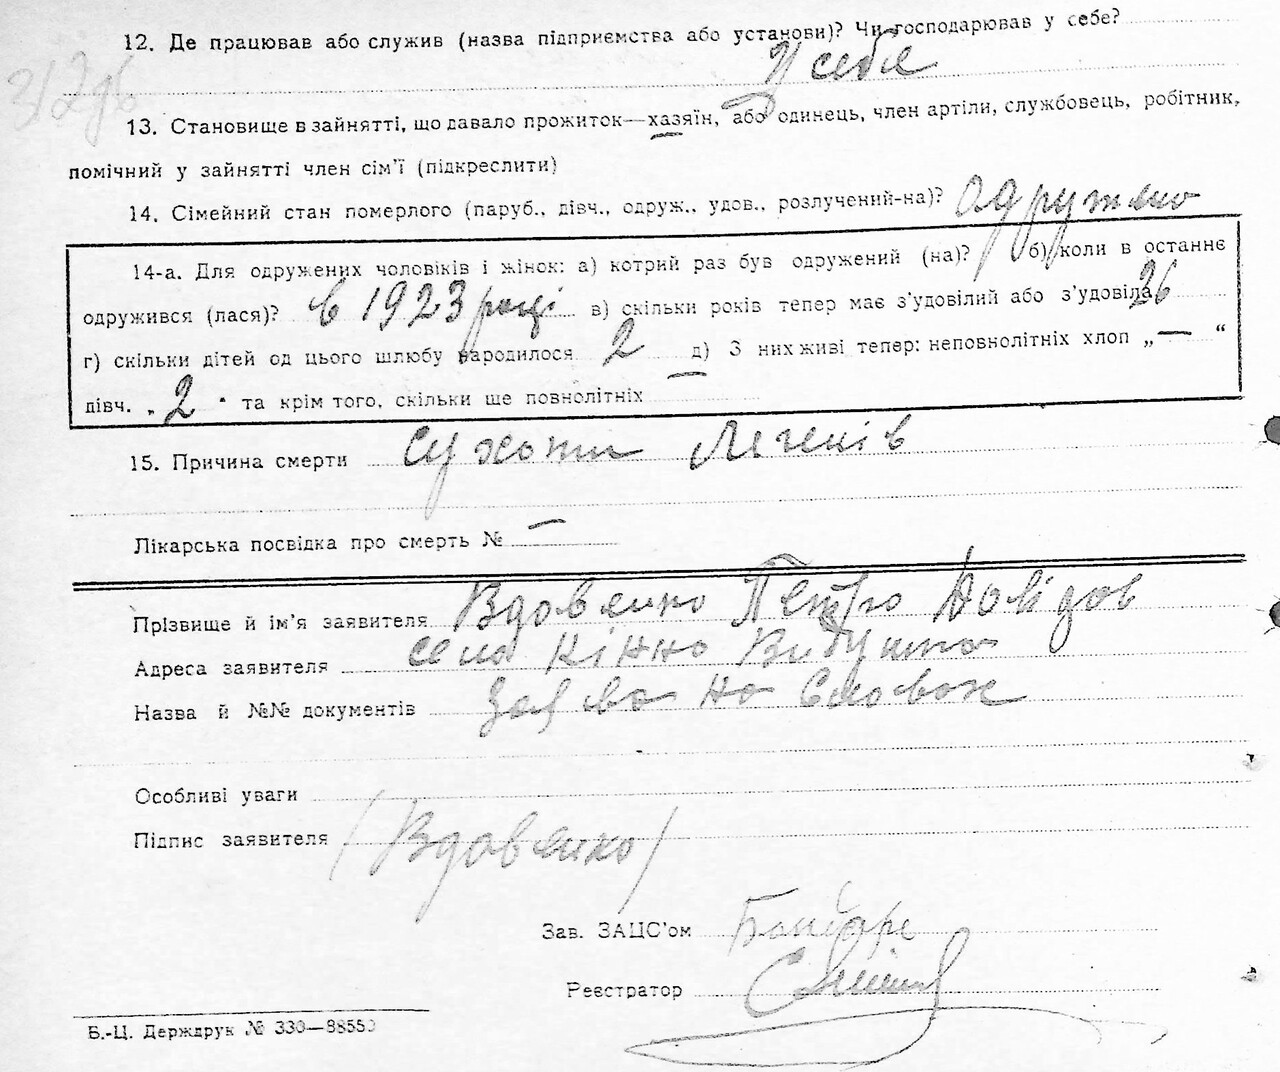 12. Де працював або служив (назва підприємства або установи)? Чи господарював у себе?
У себе
13. Становище в зайнятті, що давало прожиток—хазяїн, або одинець, член артіли, службовець, робітник,
помічний у зайнятті член сім'ї (підкреслити)
14. Сімейний стан померлого (паруб., дівч., одруж., удов., розлучений-на)? Одружено
14-а. Для одружених чоловіків і жінок: а) котрий раз був одружений (на)? 1 б) коли в останнє
одружився (лася)? в 1923 році в) скільки років тепер має з'удовілий або з'удовіла 26
г) скільки дітей од цього шлюбу народилося 2 д) З них живі тепер: неповнолітніх хлоп „ — “
дівч. „ 2 " та крім того, скільки ще повнолітніх —
15. Причина смерти Сухоти Легенів
Лікарська посвідка про смерть № —
Прізвище й ім'я заявителя Вдовенко Петро Довідов
Адреса заявителя села
Назва й №№ документів Заява на Словах
Особливі уваги
Підпис заявителя / Вдовенко /
Зав. ЗАЦС'ом
Реєстратор
Б.-Ц. Держдрук № 330—8855